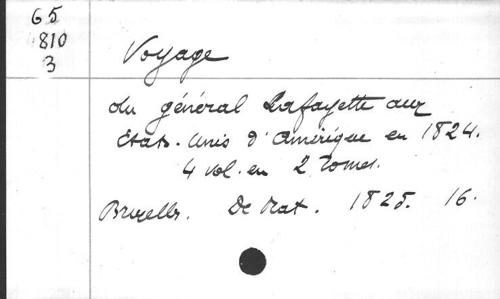 65
4810
3
Voyage
du général Lafayette aux
Etats-Unis d'Amérique en 1824.
4 vol. en 2 tomes.
Bruxelles. De Mat. 1825. 16.